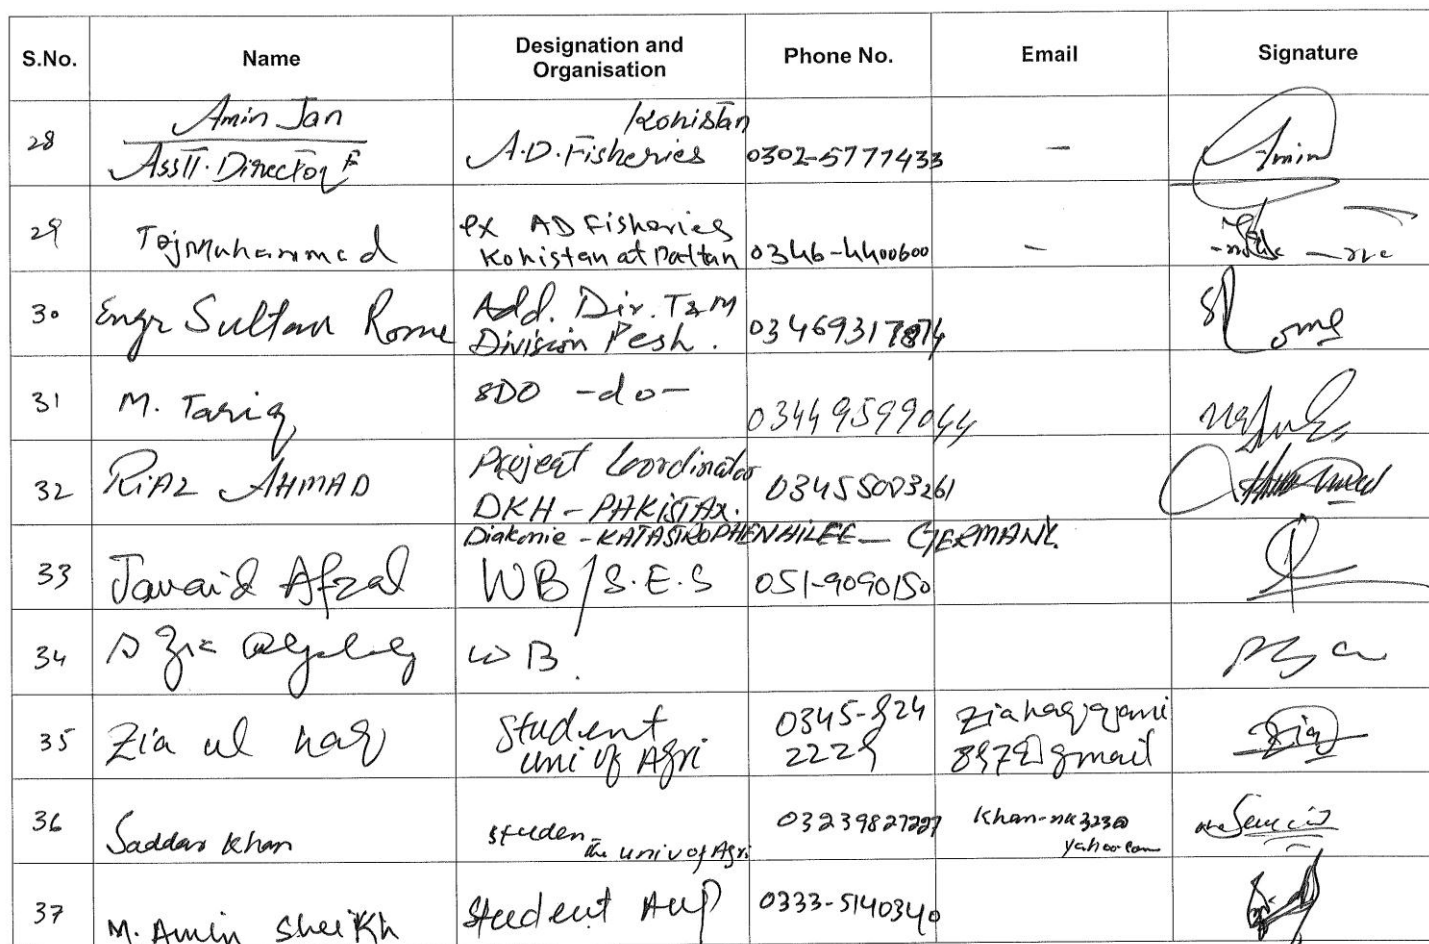 S.No. Name Designation and Organisation Phone No. Email Signature
28 Amin Jan Kohistan
Asstt. Director F A.D. Fisheries 0302-5777433 - Amin
29 Taj Muhammad ex AD Fisheries
Kohistan at Pattan 0346-4400600 -
30 Engr Sultan Rome Add. Dir. T&M
Division Pesh. Rome
31 M. Tariq SDO -do- 03449599044
32 RIAZ AHMAD Project Coordinator
DKH - PAKISTAN. 03455003261
Diakonie - KATASTROPHENHILFE - GERMANY.
33 Javaid Afzal WB/S.E.S 051-9090150
34 WB.
35 Zia ul haq Student 0345-924
uni of Agri 2229 Zia
36 Saddar Khan studen-
the univ of Agri yahoo com
37 M. Amin Sheikh Student AUP 0333-5140340